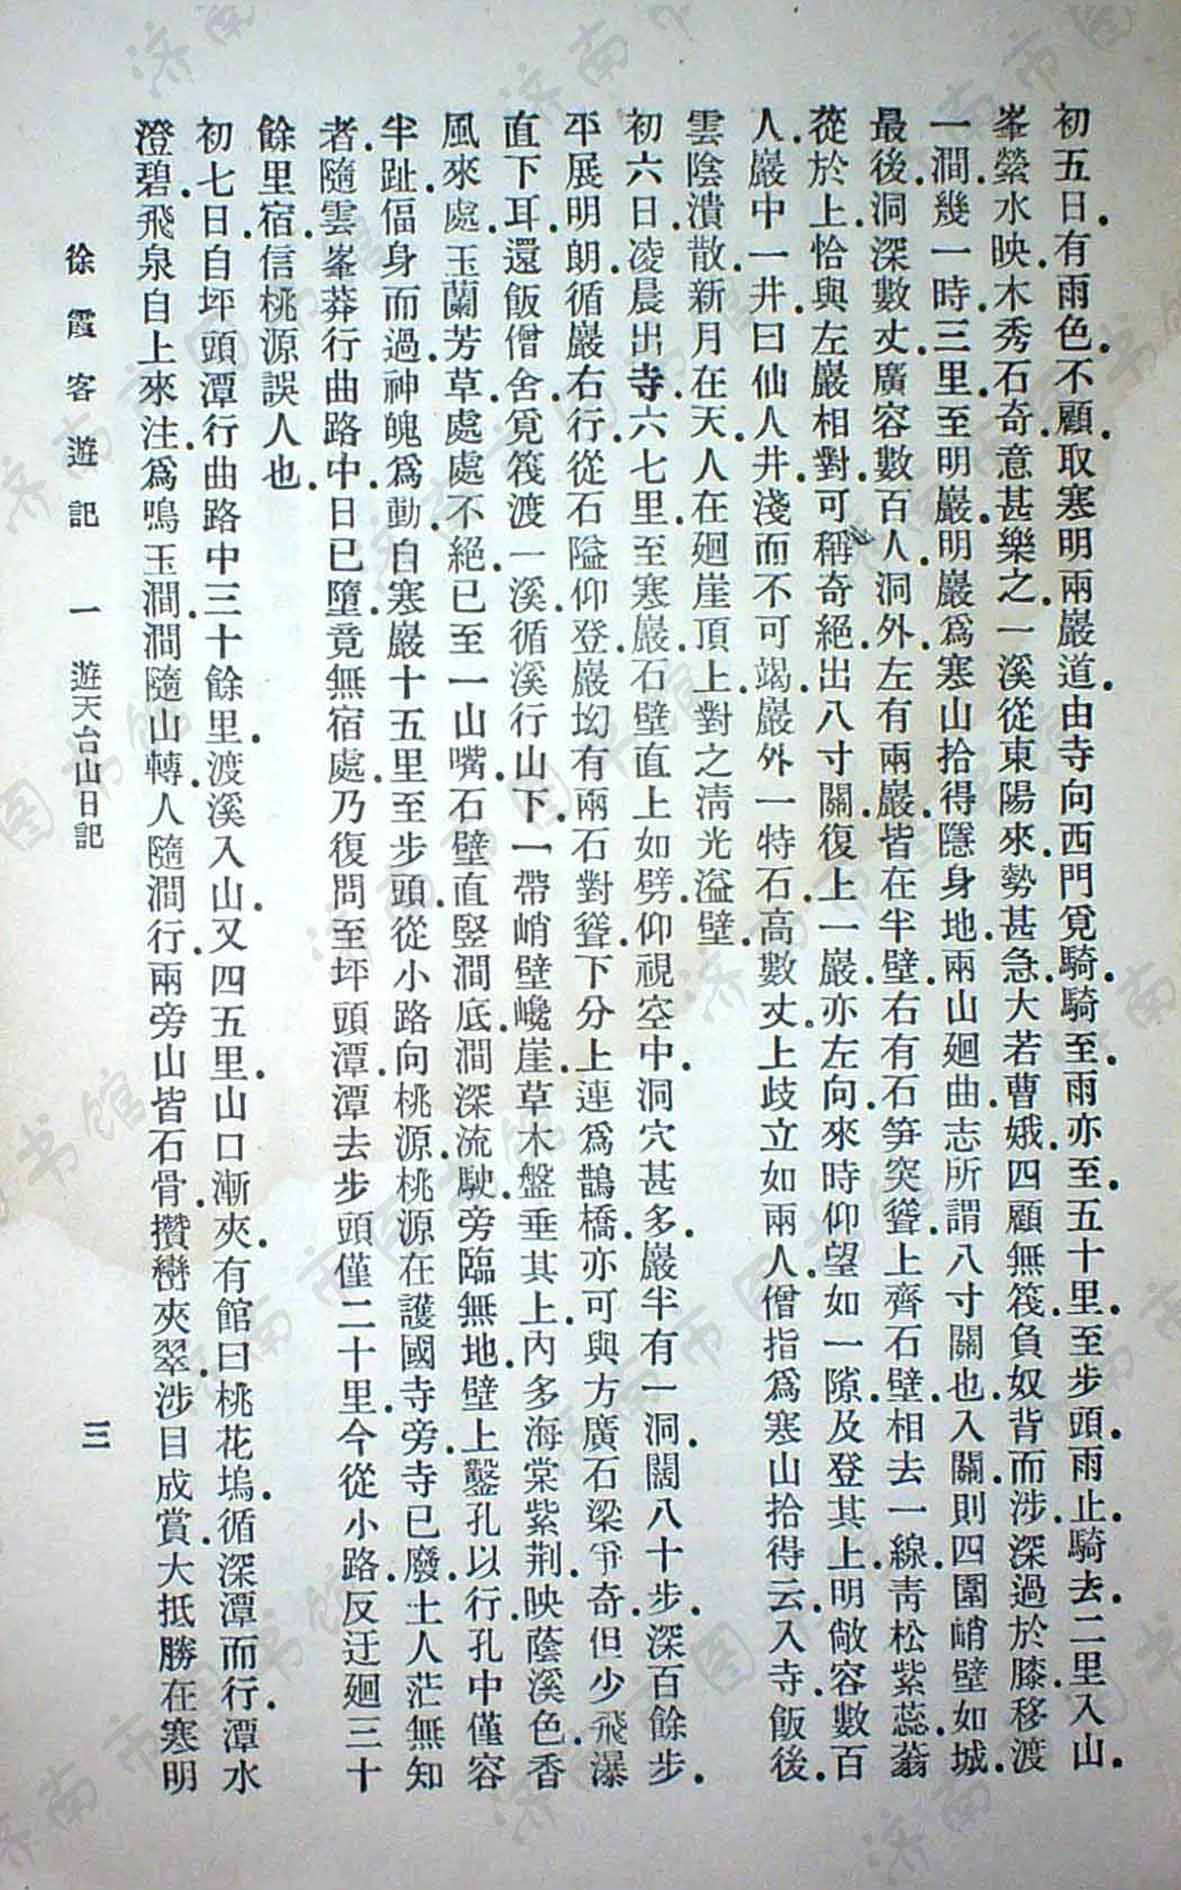 初五日．有雨色．不顧．取寒明兩巖道．由寺向西門覓騎．騎至．雨亦至．五十里．至步頭．雨止．騎去．二里入山．
峯縈水映．木秀石奇．意甚樂之．一溪從東陽來．勢甚急．大若曹娥．四顧無筏．負奴背而涉．深過於膝．移渡
一澗．幾一時．三里至明巖．明巖爲寒山拾得隱身地．兩山廻曲．志所謂八寸關也．入關．則四圍峭壁如城．
最後．洞深數丈．廣容數百人．洞外．左有兩巖．皆在半壁．右有石笋突聳．上齊石壁．相去一線．青松紫蕊．蓊
蓯於上．恰與左巖相對．可稱奇絕．出八寸關．復上一巖．亦左向．來時仰望如一隙．及登其上．明敞容數百
人．巖中一井．曰仙人井．淺而不可竭．巖外一特石．高數丈．上歧立如兩人．僧指爲寒山拾得云．入寺．飯後．
雲陰潰散．新月在天．人在廻崖頂上．對之清光溢壁．
初六日．凌晨出寺．六七里．至寒巖．石壁直上如劈．仰視空中．洞穴甚多．巖半有一洞．闊八十步．深百餘步．
平展明朗．循巖右行．從石隘仰登．巖坳有兩石對聳．下分上連．爲鵲橋．亦可與方廣石梁爭奇．但少飛瀑
直下耳．還飯僧舍．覓筏渡一溪．循溪行山下．一帶峭壁巉崖．草木盤垂其上．內多海棠紫荆．映蔭溪色．香
風來處．玉蘭芳草．處處不絕．已至一山嘴．石壁直竪澗底．澗深流駛．旁臨無地．壁上鑿孔以行．孔中僅容
半趾．偪身而過．神魄爲動．自寒巖十五里至步頭．從小路向桃源．桃源在護國寺旁．寺已廢．土人茫無知
者．隨雲峯莽行曲路中．日已墮．竟無宿處．乃復問至坪頭潭．潭去步頭僅二十里．今從小路．反迂廻三十
餘里．宿．信桃源誤人也．
初七日．自坪頭潭行曲路中．三十餘里．渡溪入山．又四五里．山口漸夾．有館曰桃花塢．循深潭而行．潭水
澄碧．飛泉自上來注．爲鳴玉澗．澗隨山轉．人隨澗行．兩旁山皆石骨．攢巒夾翠．涉目成賞．大抵勝在寒明
徐霞客遊記 一 遊天台山日記 三